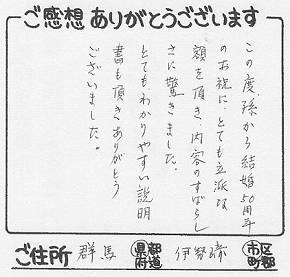 ご感想 ありがとうございます
この度、孫から結婚50周年
のお祝に、とても立派な
額を頂き、内容のすばらし
さに驚きました。
とてもわかりやすい説明
書も頂きありがとう
ございました。
ご住所 群馬 都道府県 伊勢崎 市区町郡